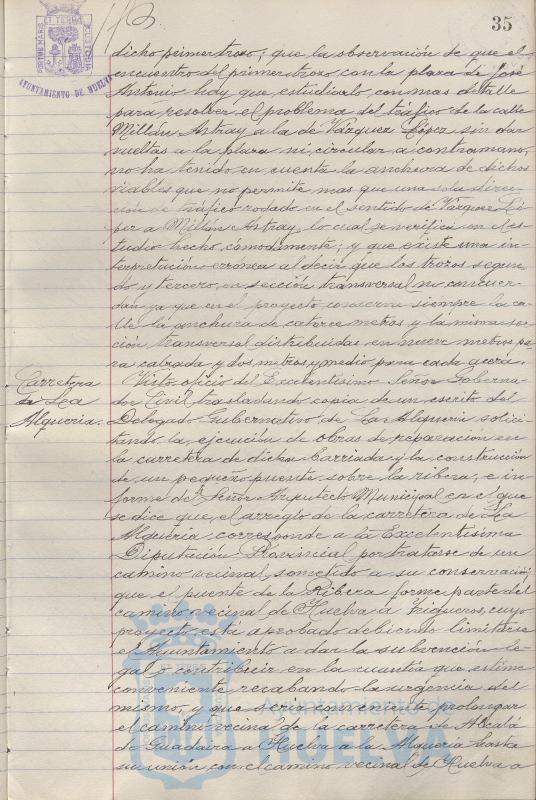 35
PORTUS MARIS ET TERRAE CUSTODIA
AYUNTAMIENTO DE HUELVA
dicho primer trozo; que la observación de que el
encuentro del primer trozo con la plaza de José
Antonio hay que estudiarlo con mas detalle
para resolver el problema del tráfico de la calle
Millán Astray a la de Vázquez López sin dar
vueltas a la plaza ni circular a contramano,
no ha tenido en cuenta la anchura de dichos
viables que no permite mas que una sola direc-
ción de tráfico rodado en el sentido de Vázquez Ló-
pez a Millán Astray, lo cual se verifica en el es-
tudio hecho, cómodamente; y que existe una in-
terpretación errónea al decir que los trozos segun-
do y tercero, en sección transversal no concuer-
dan ya que en el proyecto conserva siempre la ca-
lle la anchura de catorce metros y la misma sec-
ción transversal distribuidas en nueve metros pa-
ra calzada y dos metros y medio para cada acera.
Carretera
de La
Alqueria.
Visto oficio del Excelentísimo Señor Goberna-
dor Civil trasladando copia de un escrito del
Delegado Gubernativo de La Alqueria solici-
tando la ejecución de obras de reparación en
la carretera de dicha barriada y la construcción
de un pequeño puente sobre la ribera; e in-
forme del Señor Arquitecto Municipal en el que
se dice que el arreglo de la carretera de La
Alqueria corresponde a la Excelentísima
Diputación Provincial por tratarse de un
camino vecinal sometido a su conservación;
que el puente de la Ribera forma parte del
camino vecinal de Huelva a Trigueros, cuyo
proyecto está aprobado debiendo limitarse
el Ayuntamiento a dar la subvención le-
gal o contribuir en la cuantía que estime
conveniente recabando la urgencia del
mismo, y que seria conveniente prolongar
el camino vecinal de la carretera de Alcalá
de Guadaira a Huelva a la Alqueria hasta
su unión con el camino vecinal de Huelva a
HUELVA